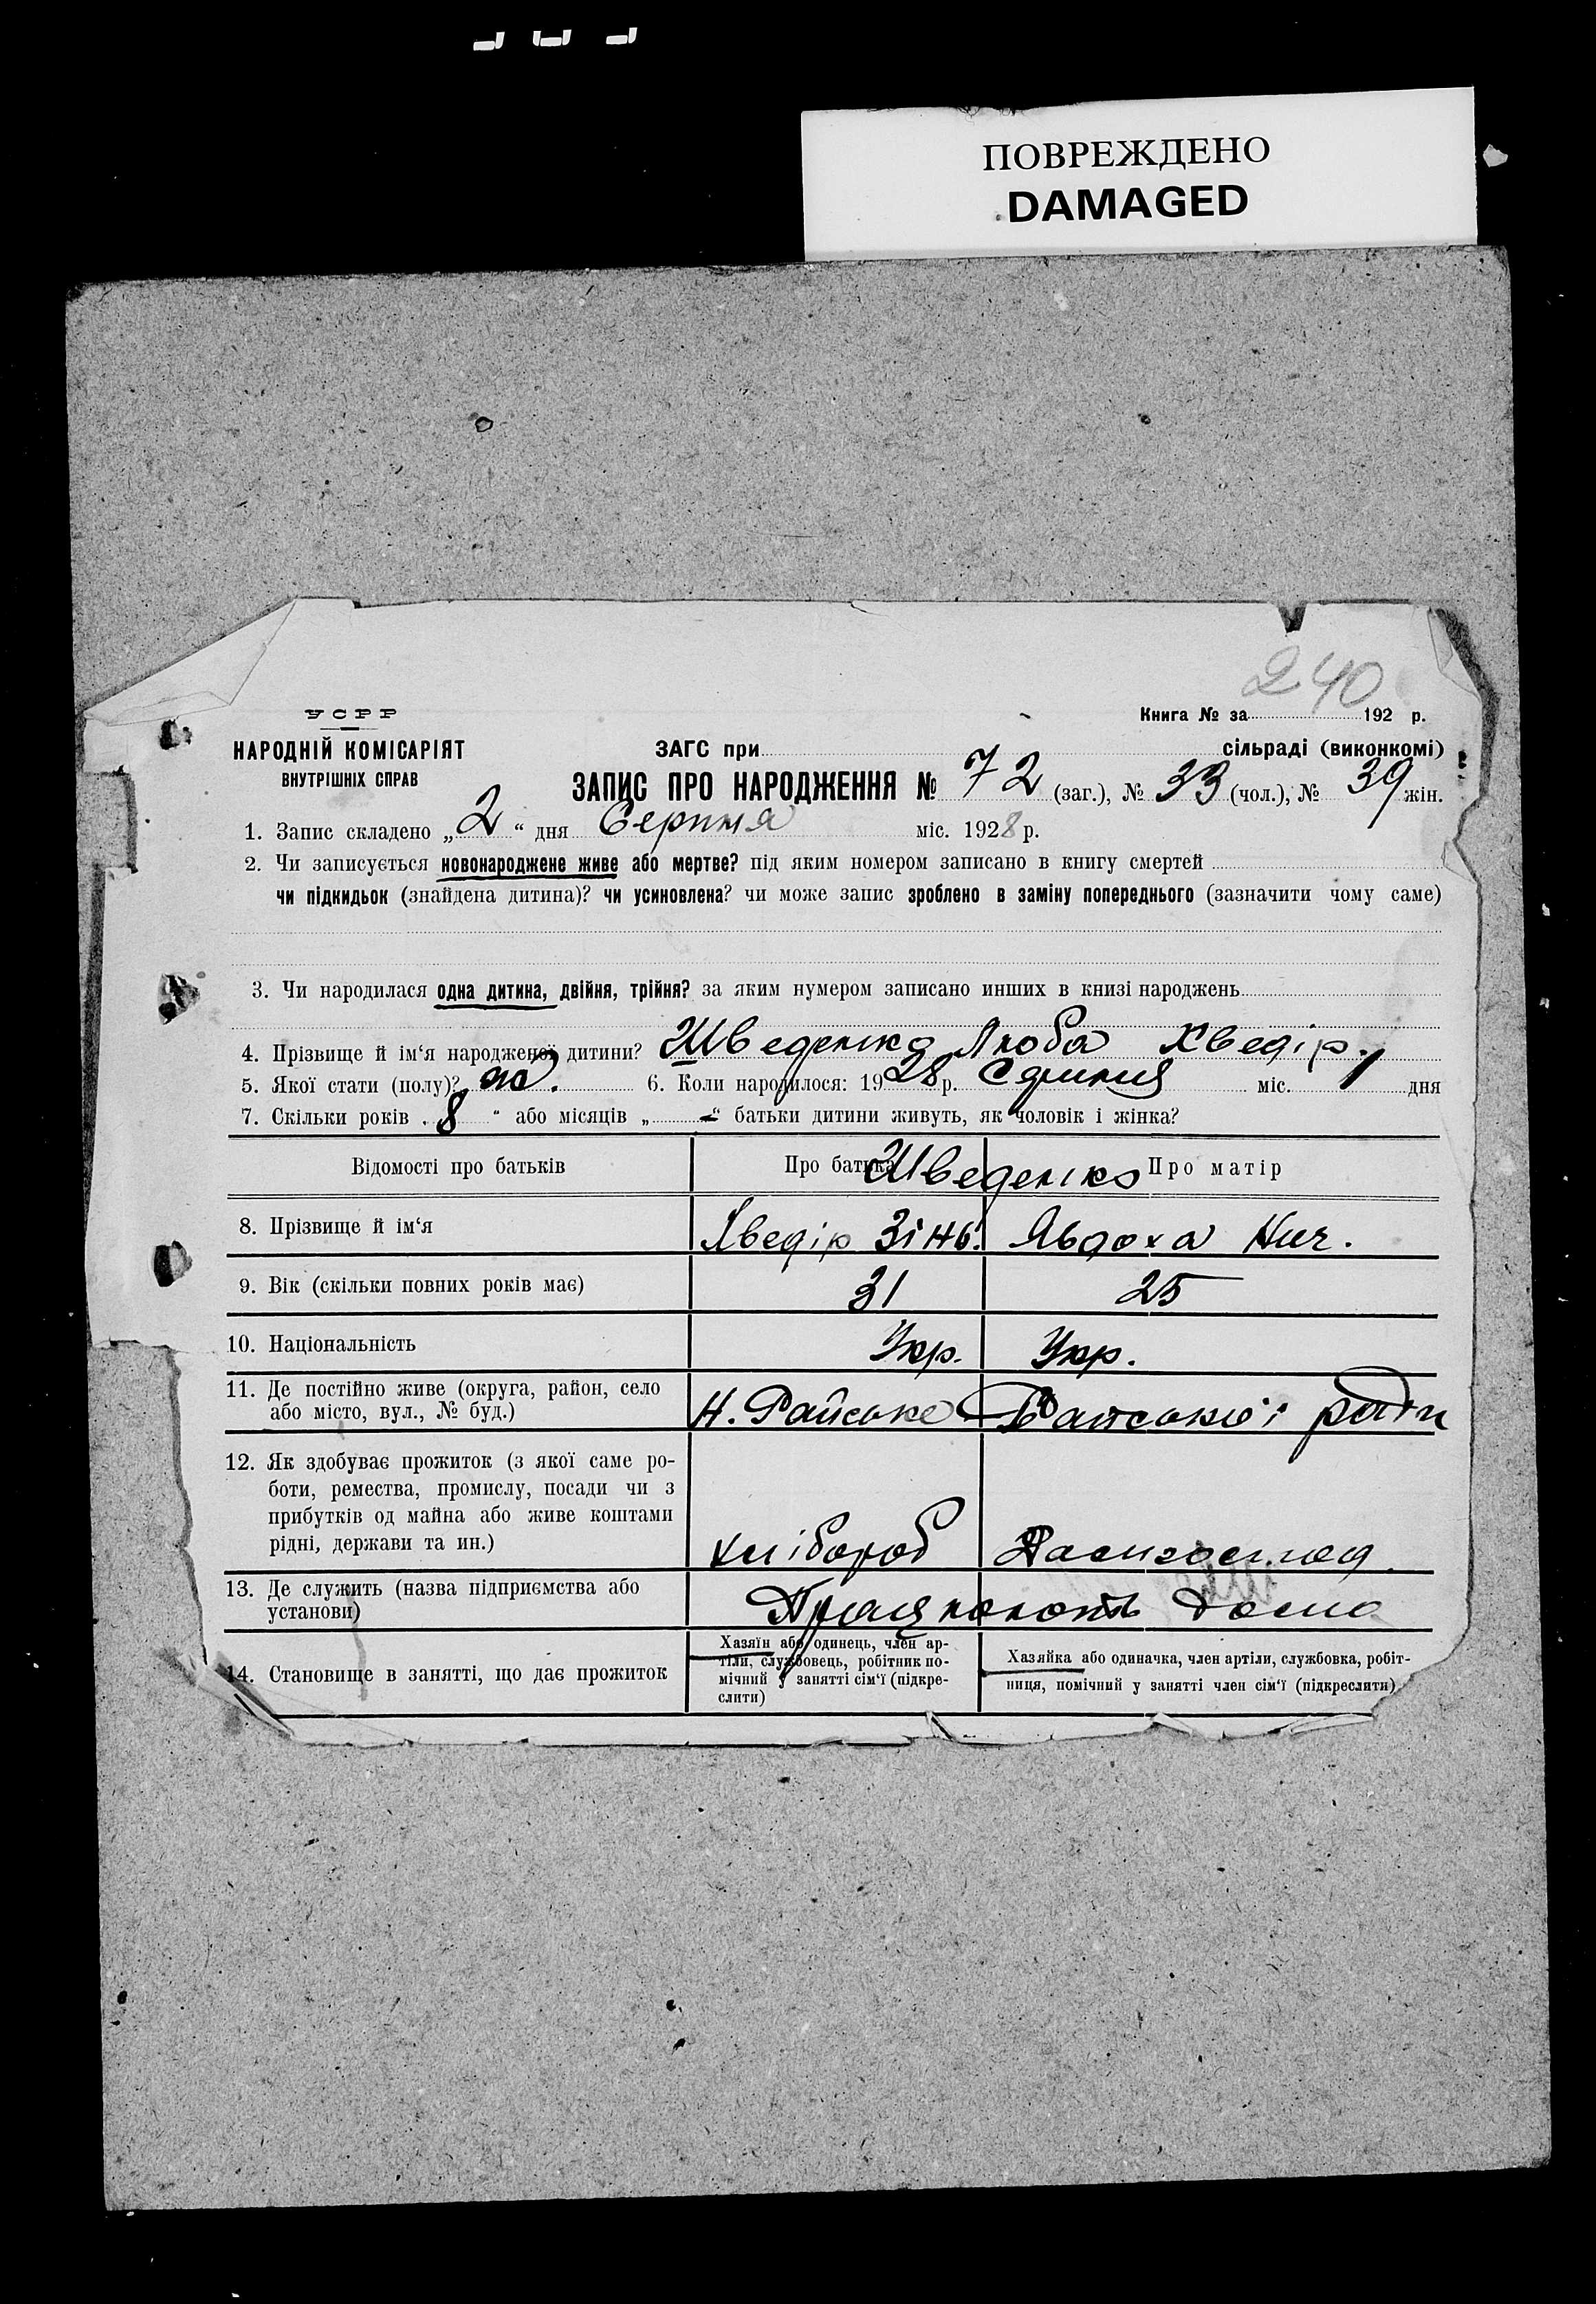 ПОВРЕЖДЕНО
DAMAGED
240
УСРР
Книга № за 192 р.
НАРОДНІЙ КОМІСАРІЯТ
ВНУТРІШНІХ СПРАВ
ЗАГС при сільраді (виконкомі)
ЗАПИС ПРО НАРОДЖЕННЯ № 72 (заг.), № 33 (чол.), № 39 жін.
1. Запис складено „2“ дня Серпня міс. 1928 р.
2. Чи записується новонароджене живе або мертве? під яким номером записано в книгу смертей
чи підкидьок (знайдена дитина)? чи усиновлена? чи може запис зроблено в заміну попереднього (зазначити чому саме)
3. Чи народилася одна дитина, двійня, трійня? за яким нумером записано инших в книзі народжень
4. Прізвище й ім‘я народженої дитини? Шведенко Люба Хведір.
5. Якої стати (полу)? жо. 6. Коли народилося: 1928 р. Серпня міс. 1 дня
7. Скільки років „8“ або місяців „—“ батьки дитини живуть, як чоловік і жінка?
Відомості про батьків Про батька Про матір
Шведенко
8. Прізвище й ім‘я Хведір Зінь. Явдоха Нич.
9. Вік (скільки повних років має) 31 25
10. Національність Укр. Укр.
11. Де постійно живе (округа, район, село
або місто, вул., № буд.) Н. Райське Райської ради
12. Як здобуває прожиток (з якої саме ро-
боти, ремества, промислу, посади чи з
прибутків од майна або живе коштами
рідні, держави та ин.) хлібороб Домгоспод.
13. Де служить (назва підприємства або
установи) Працюють дома
14. Становище в занятті, що дає прожиток
Хазяїн або одинець, член ар-
тіли, службовець, робітник по-
мічний у занятті сім‘ї (підкре-
слити)
Хазяйка або одиначка, член артіли, службовка, робіт-
ниця, помічний у занятті член сім‘ї (підкреслити)